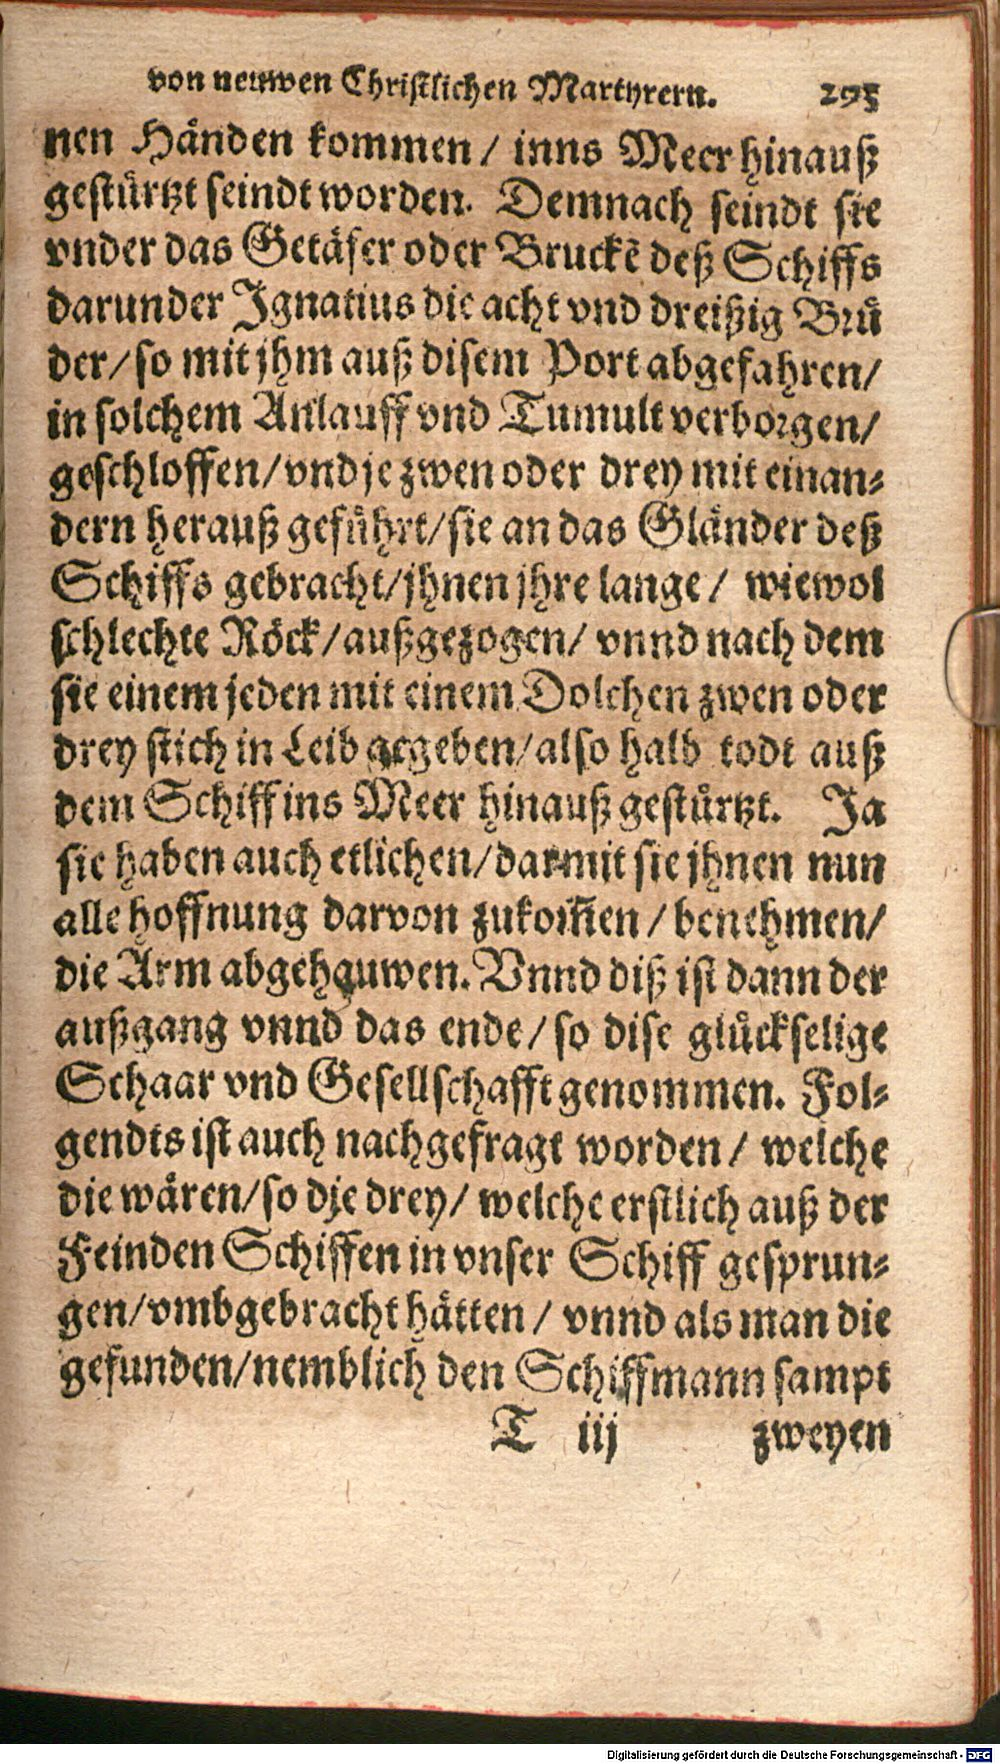 von neuwen Christlichen Martyrern. 295
nen Händen kommen / inns Meer hinauß
gestürtzt seindt worden. Demnach seindt sie
vnder das Getäfer oder Bruckē deß Schiffs
darunder Ignatius die acht vnd dreißig Brů
der / so mit jhm auß disem Port abgefahren /
in solchem Anlauff vnd Tumult verborgen /
geschloffen / vnd je zwen oder drey mit einan-
dern herauß geführt / sie an das Gländer deß
Schiffs gebracht / jhnen jhre lange / wiewol
schlechte Röck / außgezogen / vnnd nach dem
sie einem jeden mit einem Dolchen zwen oder
drey stich in Leib gegeben / also halb todt auß
dem Schiff ins Meer hinauß gestürtzt. Ja
sie haben auch etlichen / darmit sie jhnen nun
alle hoffnung darvon zukom̄en / benehmen /
die Arm abgehauwen. Vnnd diß ist dann der
außgang vnnd das ende / so dise glückselige
Schaar vnd Gesellschafft genommen. Fol-
gendts ist auch nachgefragt worden / welche
die wären / so die drey / welche erstlich auß der
Feinden Schiffen in vnser Schiff gesprun-
gen / vmbgebracht hätten / vnnd als man die
gefunden / nemblich den Schiffmann sampt
T iij zweyen
Digitalisierung gefördert durch die Deutsche Forschungsgemeinschaft - DFG